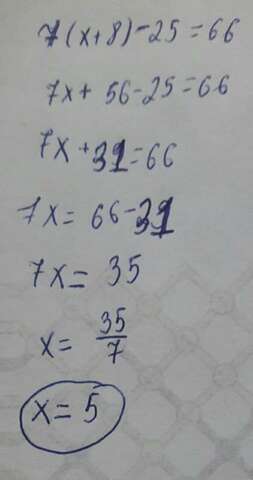 7(x+8)-25=66
7x+56-25=66
7x+31=66
7x=66-31
7x=35
x=35/7
x=5